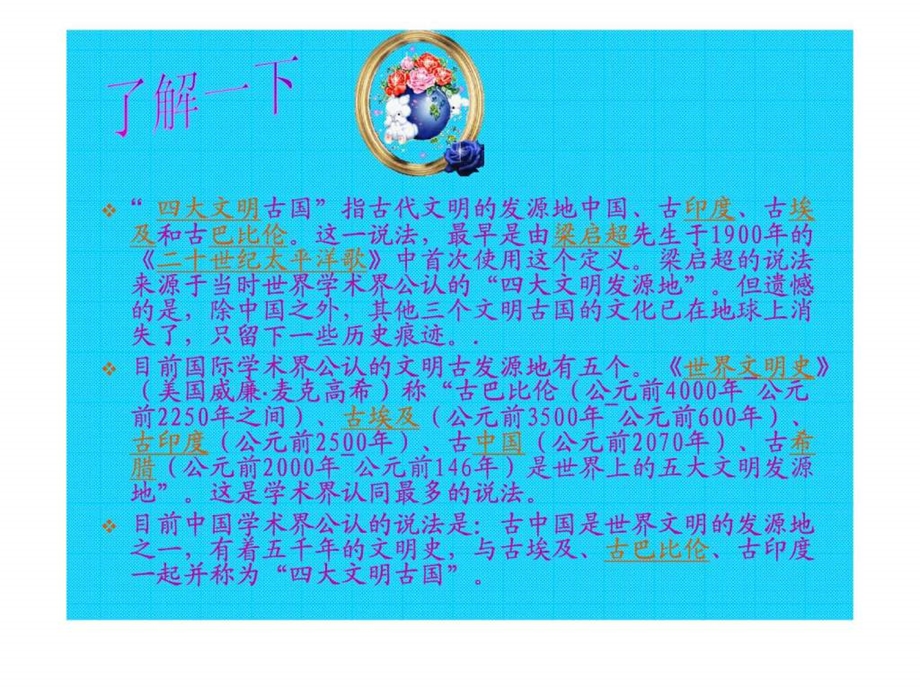 了解一下
“ 四大文明古国”指古代文明的发源地中国、古印度、古埃
及和古巴比伦。这一说法，最早是由梁启超先生于1900年的
《二十世纪太平洋歌》中首次使用这个定义。梁启超的说法
来源于当时世界学术界公认的“四大文明发源地”。但遗憾
的是，除中国之外，其他三个文明古国的文化已在地球上消
失了，只留下一些历史痕迹。.
目前国际学术界公认的文明古发源地有五个。《世界文明史》
（美国威廉·麦克高希）称“古巴比伦（公元前4000年_公元
前2250年之间）、古埃及（公元前3500年_公元前600年）、
古印度（公元前2500年）、古中国（公元前2070年）、古希
腊（公元前2000年_公元前146年）是世界上的五大文明发源
地”。这是学术界认同最多的说法。
目前中国学术界公认的说法是：古中国是世界文明的发源地
之一，有着五千年的文明史，与古埃及、古巴比伦、古印度
一起并称为“四大文明古国”。